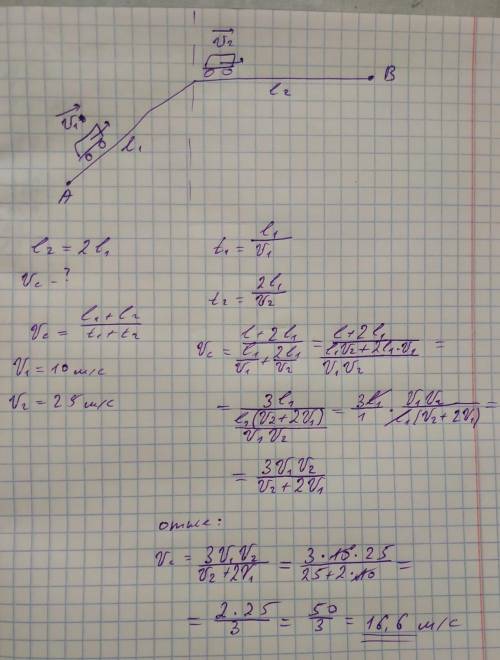 v₂
B
l₂
v₁
l₁
A
l₂ = 2l₁
v_c - ?
v_c = (l₁ + l₂)/(t₁ + t₂)
v₁ = 10 м/с
v₂ = 25 м/с
t₁ = l₁/v₁
t₂ = 2l₁/v₂
v_c = (l + 2l₁)/(l₁/v₁ + 2l₁/v₂) = (l + 2l₁)/((l₁v₂ + 2l₁·v₁)/(v₁v₂)) =
= 3l₁/((l₁(v₂ + 2v₁))/(v₁v₂)) = 3l₁/1 · v₁v₂/(l₁(v₂ + 2v₁)) =
= 3v₁v₂/(v₂ + 2v₁)
v_c = 3v₁v₂/(v₂ + 2v₁) = (3·10·25)/(25 + 2·10) =
= (2·25)/3 = 50/3 = 16,6 м/с